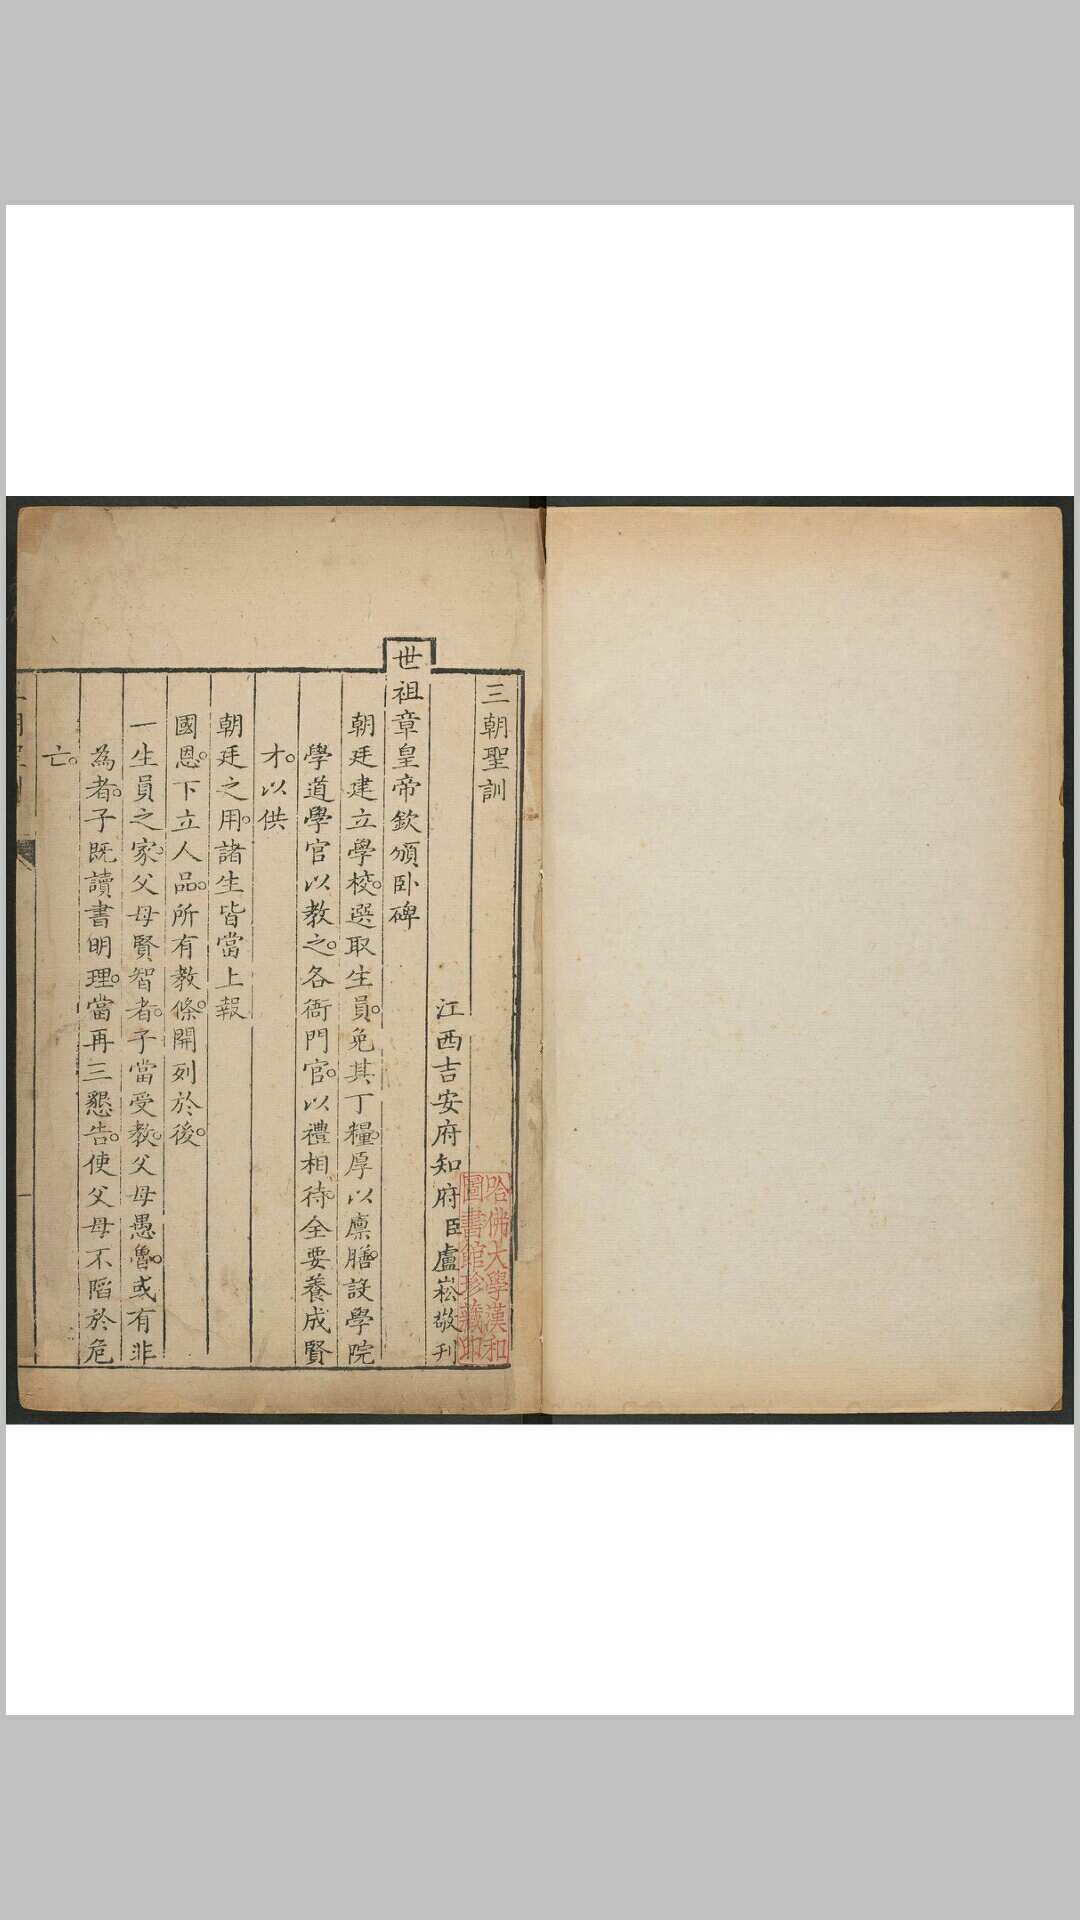 三朝聖訓
江西吉安府知府臣盧崧敬刊
世祖章皇帝欽頒卧碑
朝廷建立學校。選取生員。免其丁糧。厚以廪膳。設學院
學道學官以教之。各衙門官。以禮相待。全要養成賢
才。以供
朝廷之用。諸生皆當上報
國恩。下立人品。所有教條。開列於後。
一生員之家。父母賢智者。子當受教。父母愚魯。或有非
為者。子既讀書明理。當再三懇告。使父母不陷於危
亡。
哈佛大學漢和
圖書館珍藏印